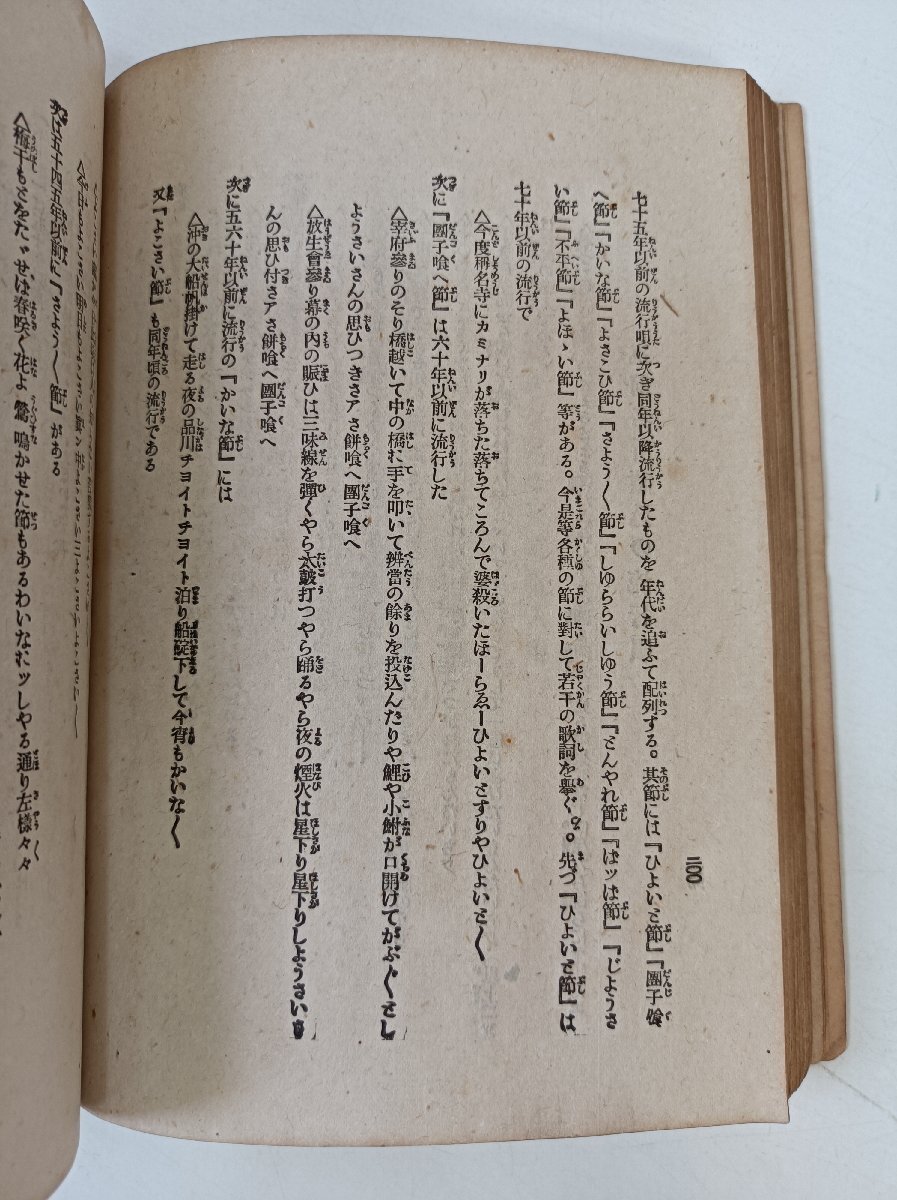 二〇〇
七十五年以前の流行唄に次ぎ同年以降流行したものを年代を追ふて配列する。其節には『ひよいと節』『團子喰
へ節』『かいな節』『よさこひ節』『さよう〱節』『しゆららいしゆう節』『とんやれ節』『ばツは節』『じようさ
い節』『不平節』『よほゝい節』等がある。今是等各種の節に對して若干の歌詞を擧ぐ。先づ『ひよいと節』は
七十年以前の流行で
〽今度稱名寺にカミナリが落ちた落ちてころんで婆殺いたほーらゑーひよいとすりやひよいと〱
次に『團子喰へ節』は六十年以前に流行した
〽宰府參りのそり橋越いて中の橋に手を叩いて辨當の餘りを投込んたりや鯉や小鮒が口開けてがぶ〲とし
ようさいさんの思ひつきさアさ餅喰へ團子喰へ
〽放生會參り幕の内の賑ひは三味線を彈くやら太皷打つやら踊るやら夜の煙火は星下り星下りしようさいさ
んの思ひ付さアさ餅喰へ團子喰へ
次に五六十年以前に流行の『かいな節』には
〽沖の大船帆掛けて走る夜の品川チヨイトチヨイト泊り船碇下して今宵もかいな〱
又『よこさい節』も同年頃の流行である
次は五十四五年以前に『さよう〱節』がある
〽梅干もさをた゛せは春咲く花よ鶯鳴かせた節もあるわいなおツしやる通り左様々々